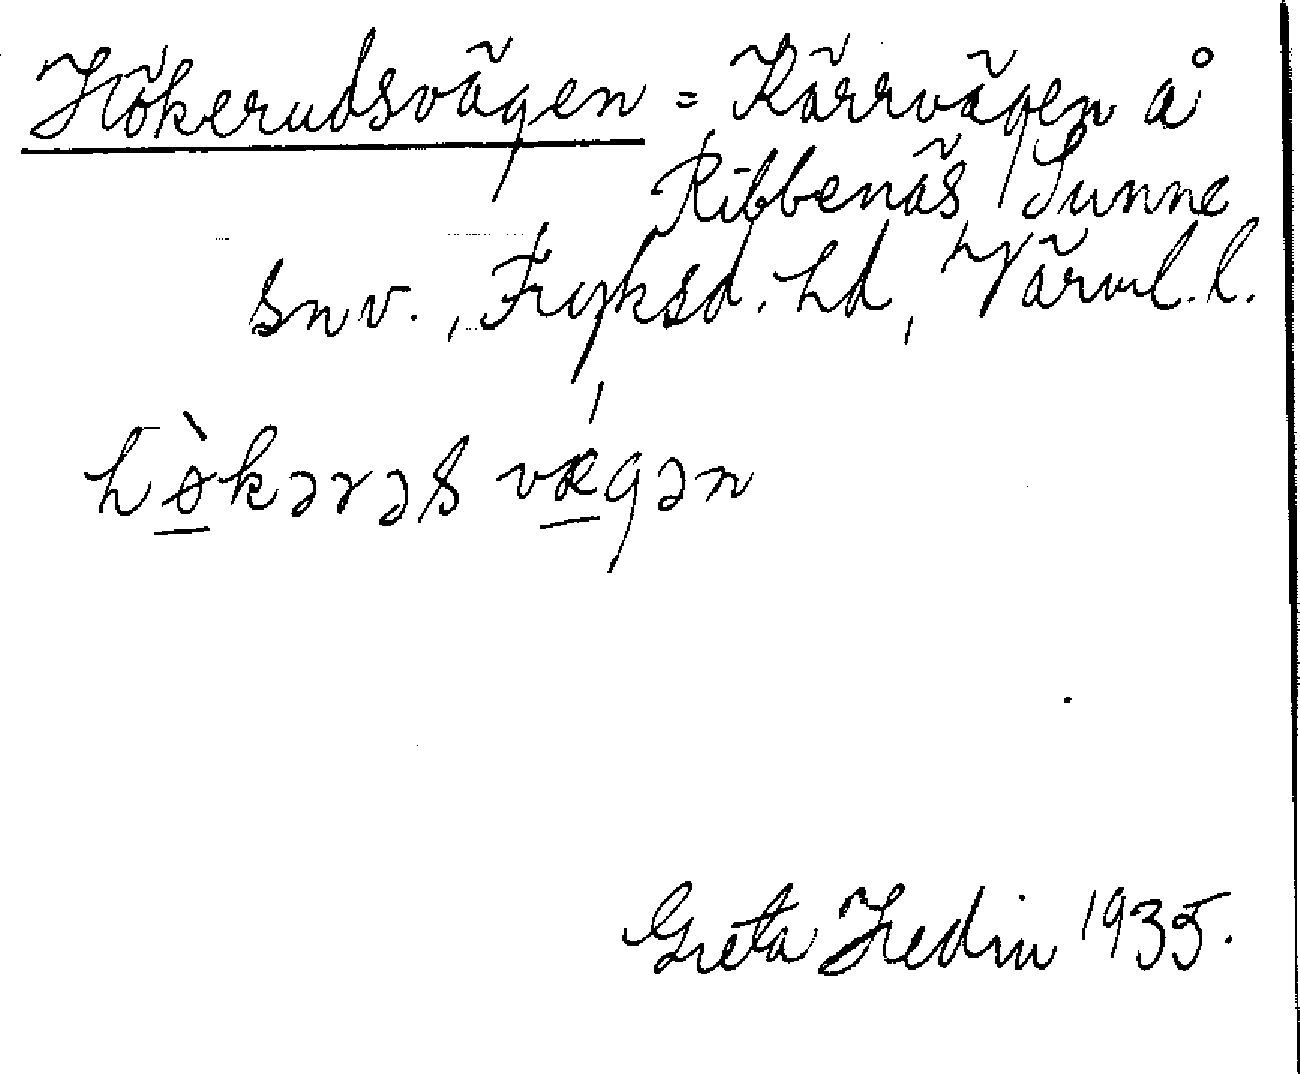 Hökerudsvägen = Kärrvägen å
Ribbenäs Sunne
snv., Fryksd. hd, Värml. l.
hø̀kərəs vǽgən
Greta Hedin 1935.